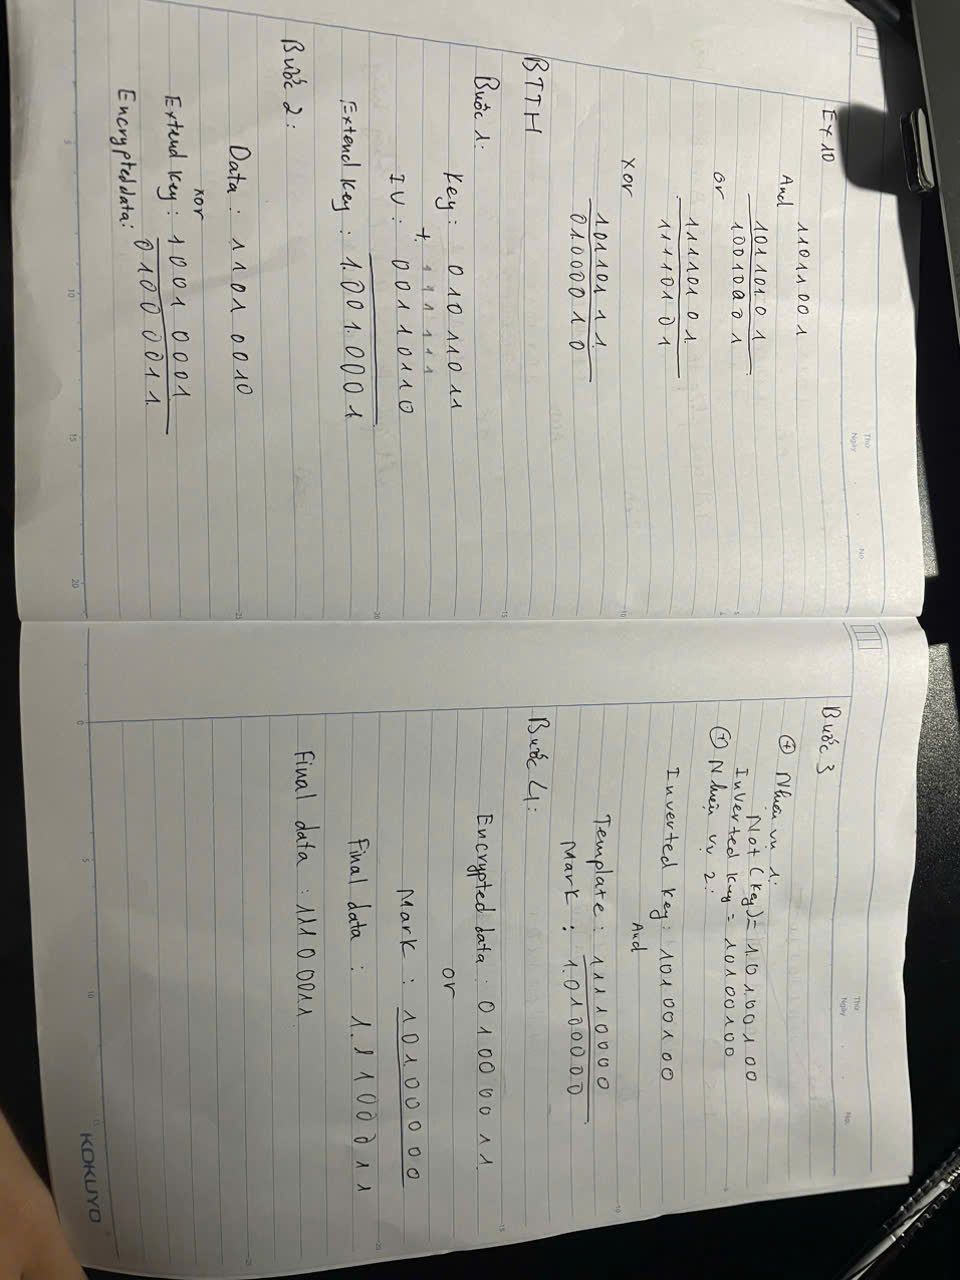 Thứ
Ngày
No
Ex 10
11011001
And
10110101
10010001
or
11110101
11110101
xor
10110111
01000010
BTTH
Bước 1:
Key: 01011011
+ 111111
IV: 00110110
Extend key: 1001.0001
Bước 2:
Data: 1101 0010
xor
Extend key: 1001 0001
Encrypted data: 0100 0011
Thứ
Ngày
No.
Bước 3
+ Nhiệm vụ 1:
Not (key) = 10100100
Inverted key = 10100100
+ Nhiệm vụ 2:
Inverted key: 10100100
And
Template: 11110000
Mark: 10100000
Bước 4:
Encrypted data: 01000011
or
Mark: 10100000
Final data: 11100011
Final data: 1110 0011
KOKUYO